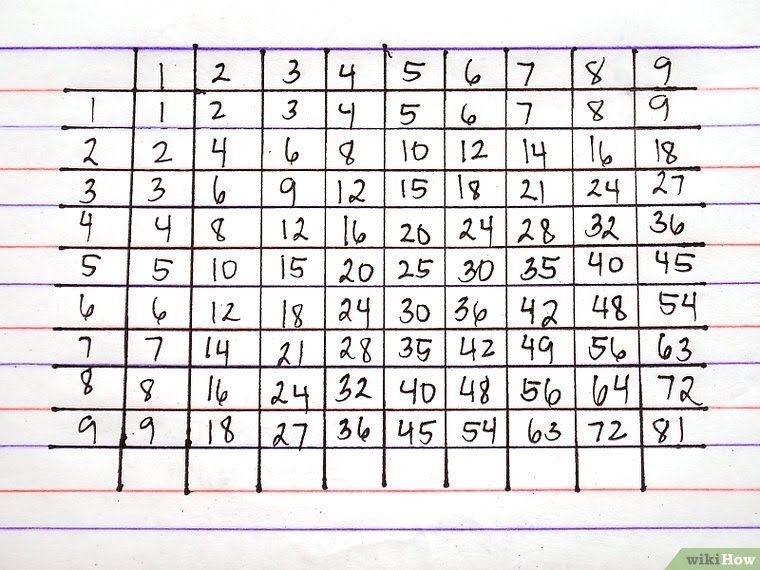 1 2 3 4 5 6 7 8 9
1 1 2 3 4 5 6 7 8 9
2 2 4 6 8 10 12 14 16 18
3 3 6 9 12 15 18 21 24 27
4 4 8 12 16 20 24 28 32 36
5 5 10 15 20 25 30 35 40 45
6 6 12 18 24 30 36 42 48 54
7 7 14 21 28 35 42 49 56 63
8 8 16 24 32 40 48 56 64 72
9 9 18 27 36 45 54 63 72 81
wikiHow